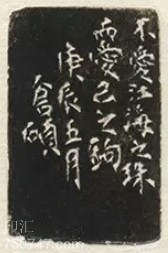 不愛江海之珠
而愛己之鉤
庚辰五月
倉碩
印汇
760747.com